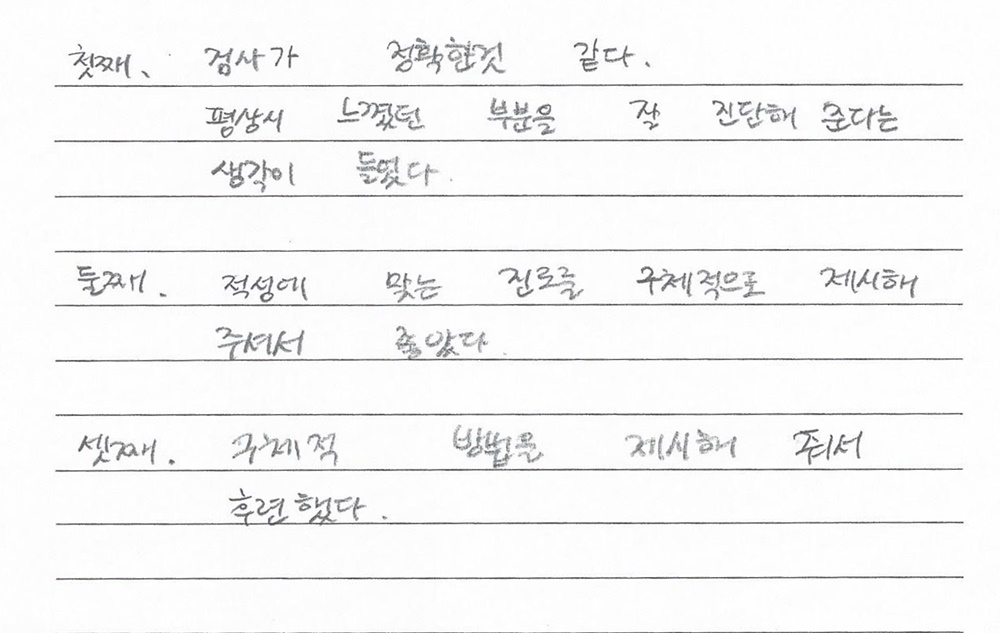 첫째. 검사가 정확한것 같다.
평상시 느꼈던 부분을 잘 진단해 준다는
생각이 들었다.
둘째. 적성에 맞는 진로를 구체적으로 제시해
주셔서 좋았다.
셋째. 구체적 방법을 제시해 줘서
후련했다.